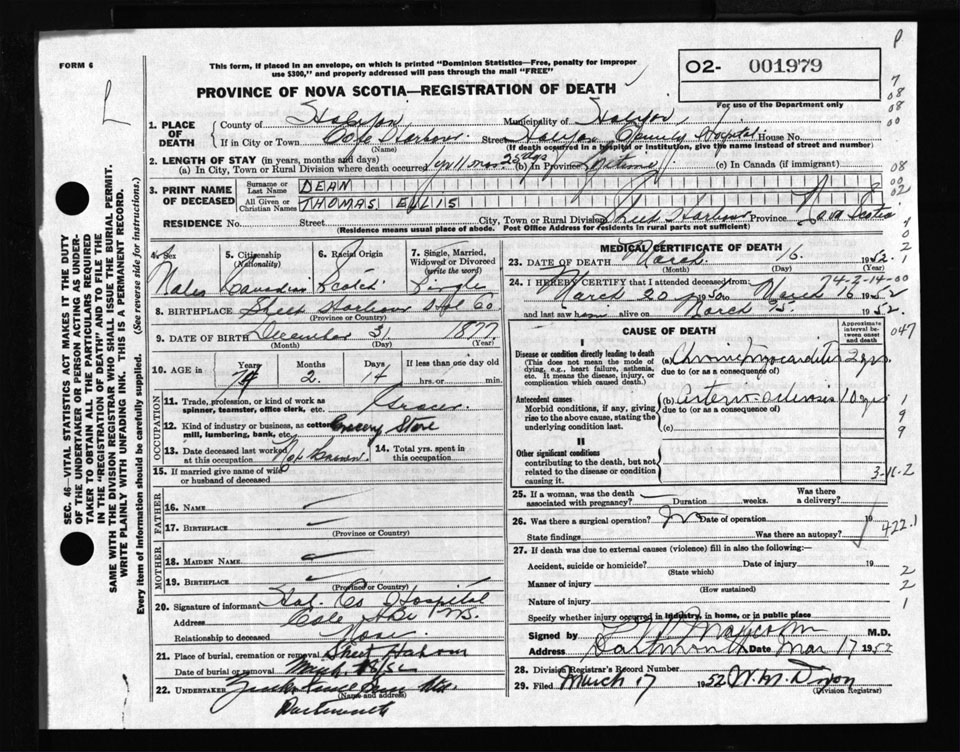 P
FORM 6
This form, if placed in an envelope, on which is printed "Dominion Statistics—Free, penalty for improper
use $300," and properly addressed will pass through the mail "FREE"
PROVINCE OF NOVA SCOTIA—REGISTRATION OF DEATH
02- 001979
For use of the Department only
L
1. PLACE OF DEATH
County of Halifax Municipality of Halifax
If in City or Town Cole Harbour Street Halifax County Hospital House No.
(Name) (If death occurred in a hospital or institution, give the name instead of street and number)
2. LENGTH OF STAY (in years, months and days)
(a) In City, Town or Rural Division where death occurred 1 yr 11 mos 25 days (b) In Province Lifetime (c) In Canada (if immigrant)
3. PRINT NAME OF DECEASED
Surname or Last Name DEAN
All Given or Christian Names THOMAS ELLIS
RESIDENCE No. Street City, Town or Rural Division Sheet Harbour Province Nova Scotia
(Residence means usual place of abode. Post Office Address for residents in rural parts not sufficient)
4. Sex Male
5. Citizenship (Nationality) Canadian
6. Racial Origin Scotch
7. Single, Married, Widowed or Divorced (write the word) Single
8. BIRTHPLACE Sheet Harbour Hfx Co
(Province or Country)
9. DATE OF BIRTH December 31 1877
(Month) (Day) (Year)
10. AGE in Years 74 Months 2 Days 14 If less than one day old
hrs. or min.
OCCUPATION
11. Trade, profession, or kind of work as
spinner, teamster, office clerk, etc. Grocer
12. Kind of industry or business, as cotton
mill, lumbering, bank, etc. Grocery Store
13. Date deceased last worked
at this occupation Not Known
14. Total yrs. spent in
this occupation
15. If married give name of wife
or husband of deceased
FATHER
16. NAME
17. BIRTHPLACE
(Province or Country)
MOTHER
18. MAIDEN NAME
19. BIRTHPLACE
(Province or Country)
20. Signature of informant Hal. Co Hospital
Address Cole Hbr N.S.
Relationship to deceased None
21. Place of burial, cremation or removal Sheet Harbour
Date of burial or removal March 18/52
22. UNDERTAKER
(Name and address)
Dartmouth
MEDICAL CERTIFICATE OF DEATH
23. DATE OF DEATH March 16 1952
(Month) (Day) (Year)
24. I HEREBY CERTIFY that I attended deceased from: 74-2-14
March 20 1950 to March 16 1952
and last saw him alive on March 15 1952
CAUSE OF DEATH
Approximate interval between onset and death
I
Disease or condition directly leading to death
(This does not mean the mode of dying, e.g., heart failure, asthenia, etc. It means the disease, injury, or complication which caused death.)
(a) Chronic myocarditis 2 yrs
due to (or as a consequence of)
Antecedent causes
Morbid conditions, if any, giving rise to the above cause, stating the underlying condition last.
(b) Arterio-sclerosis 10 yrs
due to (or as a consequence of)
(c)
II
Other significant conditions
contributing to the death, but not related to the disease or condition causing it.
25. If a woman, was the death
associated with pregnancy? Duration weeks. Was there a delivery?
26. Was there a surgical operation? No Date of operation 19
State findings Was there an autopsy?
422.1
27. If death was due to external causes (violence) fill in also the following:—
Accident, suicide or homicide? Date of injury 19
(State which)
Manner of injury
(How sustained)
Nature of injury
Specify whether injury occurred in industry, in home, or in public place
Signed by Malcolm M.D.
Address Dartmouth Date Mar 17 1952
28. Division Registrar's Record Number
29. Filed March 17 1952 W. M. Dixon
(Division Registrar)
SEC. 46—VITAL STATISTICS ACT MAKES IT THE DUTY
OF THE UNDERTAKER OR PERSON ACTING AS UNDER-
TAKER TO OBTAIN ALL THE PARTICULARS REQUIRED
IN THE "REGISTRATION OF DEATH" AND TO FILE THE
SAME WITH THE DIVISION REGISTRAR WHO SHALL ISSUE THE BURIAL PERMIT.
WRITE PLAINLY WITH UNFADING INK. THIS IS A PERMANENT RECORD.
Every item of information should be carefully supplied. (See reverse side for instructions.)